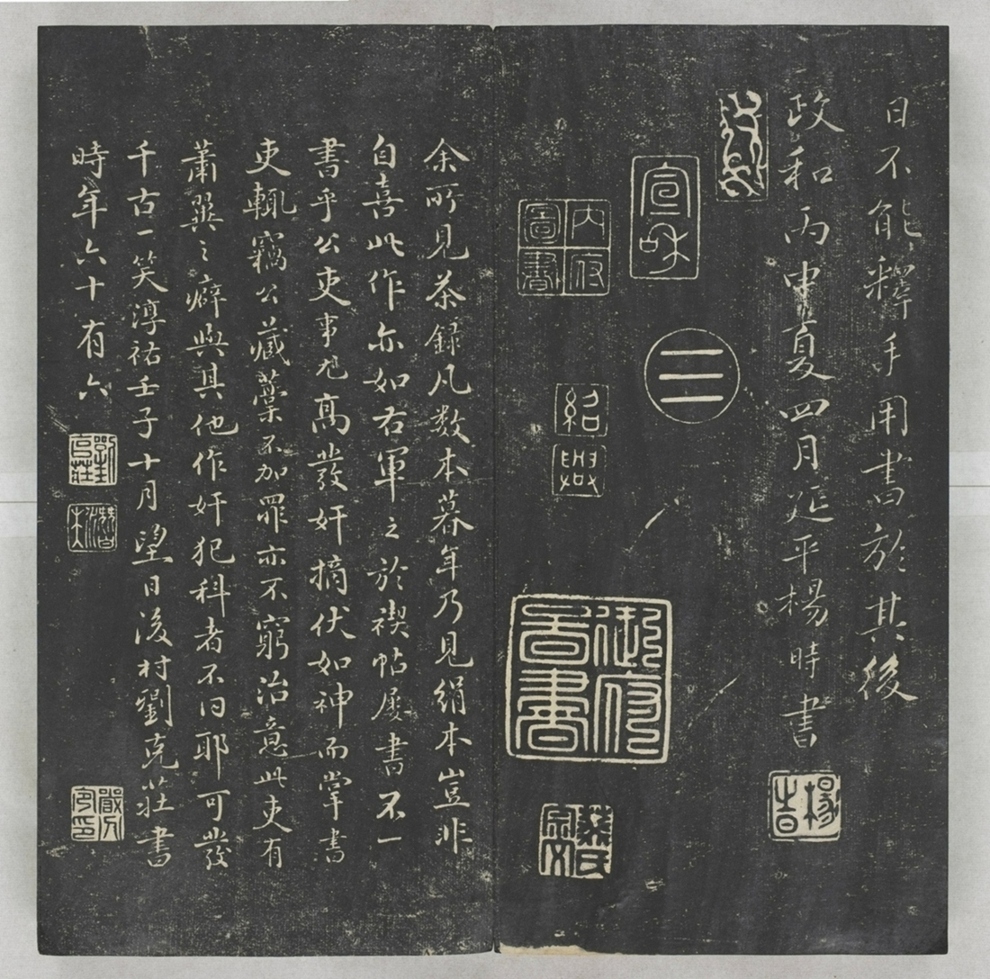 日不能釋手用書於其後
政和丙申夏四月延平楊時書
楊時
宣和
內府圖書
二
紹興
御府
余所見茶録凡数本暮年乃見絹本豈非
自喜此作亦如右軍之於禊帖屢書不一
書乎公吏事尤高發奸摘伏如神而掌書
吏輒竊公藏藁不加罪亦不窮治意此吏有
蕭翼之癖與其他作奸犯科者不同耶可發
千古一笑淳祐壬子十月望日後村劉克莊書
時年六十有六
劉克莊